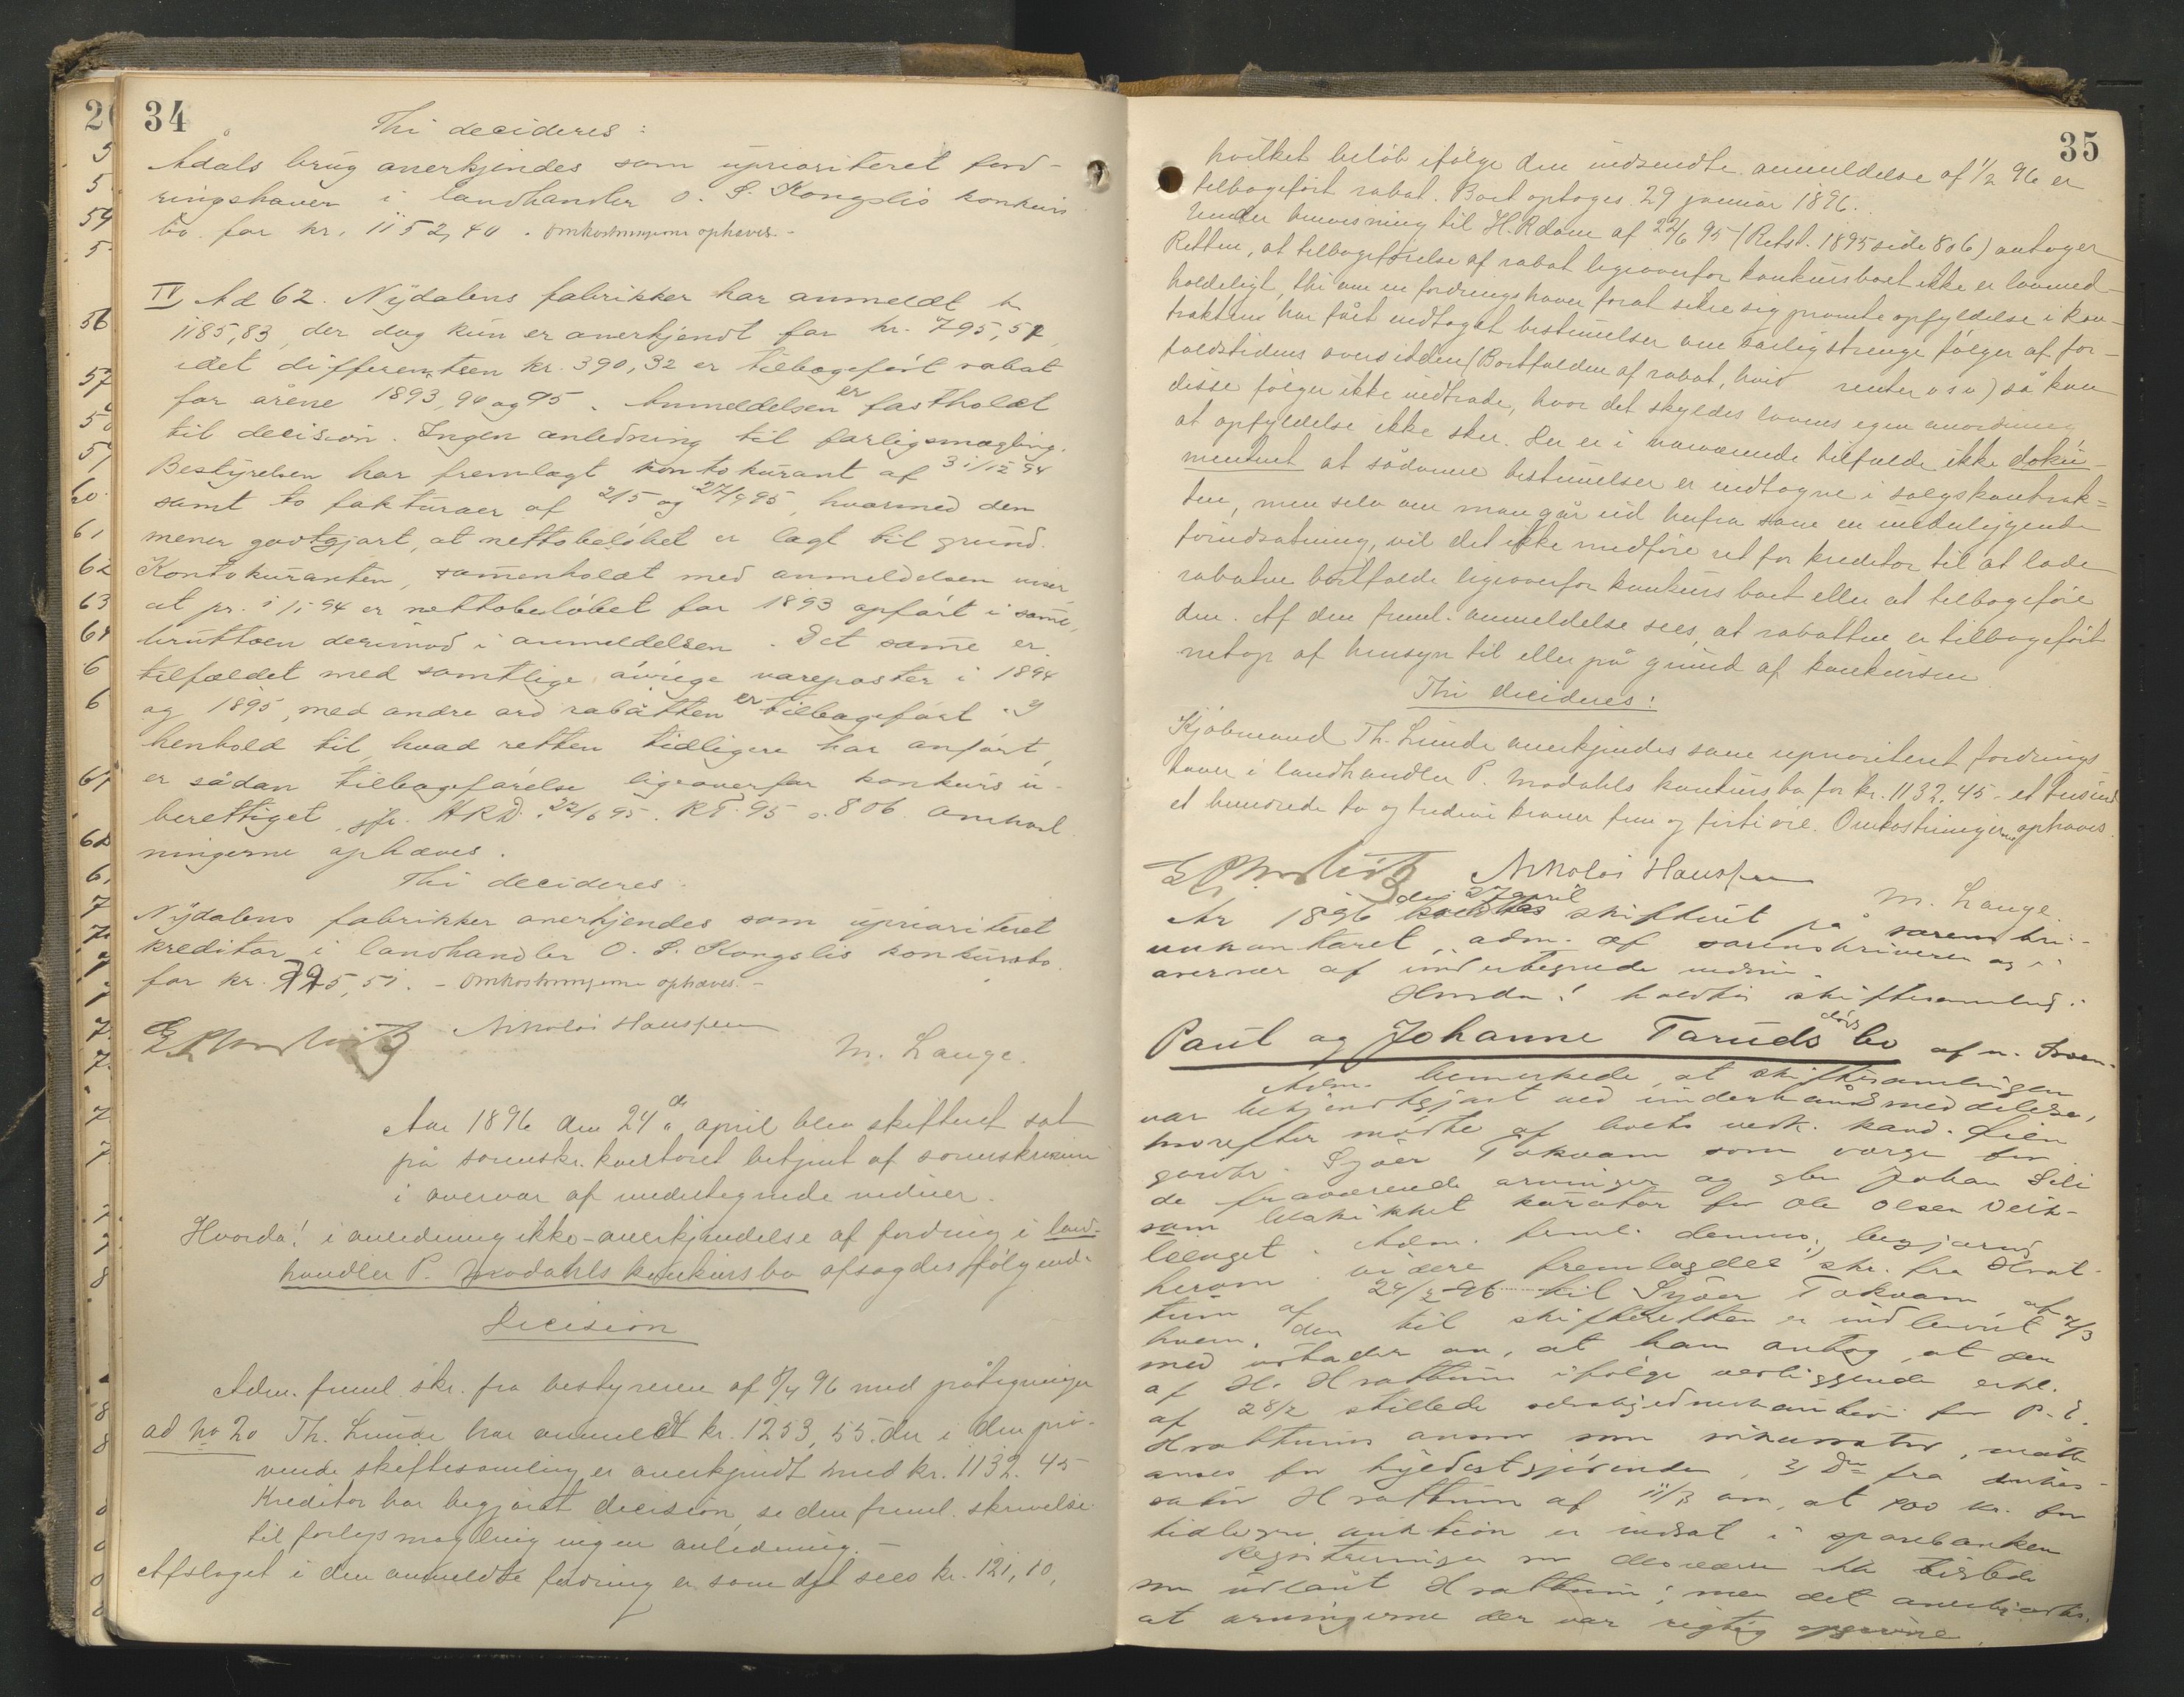 34
Thi decideres:
Ådals brug anerkjendes som uprioriteret ford-
ringshaver i landhandler O. S. Kongslis konkurs
bo for kr. 1152,40. Omkostningerne ophæves.-
IV Ad 62. Nydalens fabrikker har anmeldt kr
1185,83, der dog kun er anerkjendt for kr. 795,51,
idet differentsen kr. 390,32 er tilbageført rabat
for årene 1893, 94 og 95. Anmeldelsen er fastholdt
til decision. Ingen anledning til forligsmægling.
Bestyrelsen har fremlagt kontokurant af 31/12 94
samt to fakturaer af 2/5 og 27/9 95, hvormed den
mener godtgjort, at nettobeløbet er lagt til grund.
Kontokuranten, sammenholdt med anmeldelsen viser,
at pr. 1/1 94 er nettobeløbet for 1893 opført i samme,
bruttoen derimod i anmeldelsen. Det samme er
tilfældet med samtlige øvrige vareposter i 1894
og 1895, med andre ord rabatten er tilbageført. I
henhold til, hvad retten tidligere har anført,
er sådan tilbageførelse ligeoverfor konkurs u-
berettiget jfr. HRD. 22/6 95. RT. 95 s. 806. Omkost
ningerne ophæves.
Thi decideres:
Nydalens fabrikker anerkjendes som uprioriteret
kreditor i landhandler O. S. Kongslis konkursbo
for kr. 795,51. - Omkostningerne ophæves.-
Nikolai Hanssen
M. Lange.
Aar 1896 den 24de april blev skifteret sat
på sorenskr. kontoret betjent af sorenskriveren
i overvær af undertegnede vidner.
Hvorda! i anledning ikke-anerkjendelse af fordring i land-
handler P. Modahls konkursbo afsagdes følgende
Decision
Adm. freml. skr. fra bestyreren af 8/4 96 med påtegninger
ad No 20 Th. Lunde har anmeldt kr. 1253,55. der i den prø-
vende skiftesamling er anerkjendt med kr. 1132.45
Kreditor har begjært decision, se den freml. skrivelse.
til forligsmægling ingen anledning.-
Afslaget i den anmeldte fordring er som det sees kr. 121,10,
35
hvilket beløb ifølge den indsendte anmeldelse af 1/2 96 er
tilbageført rabat. Boet optoges 29 januar 1896.
Under henvisning til H.R.dom af 22/6 95 (Retst. 1895 side 806) antager
Retten, at tilbageførelse af rabat ligeoverfor konkursboet ikke er lovmed-
holdeligt, thi om en fordringshaver forat sikre sig promte opfyldelse i kon-
trakten har fået indtaget bestemmelser om særlig strenge følger af for-
faldstidens oversidden (Bortfalden af rabat, høie renter osv) så kan
disse følger ikke indtræde, hvor det skyldes lovens egen anordning
at opfyldelse ikke sker. Der er i nærværende tilfælde ikke doku-
menteret at sådanne bestemmelser er indtagne i salgskontrak-
ten, men selv om man går ud herfra som en underliggende
forudsætning, vil det ikke medføre ret for kreditor til at lade
rabatten bortfalde ligeoverfor konkursboet eller at tilbageføre
den. Af den freml. anmeldelse sees, at rabatten er tilbageført
netop af hensyn til eller på grund af konkursen
Thi decideres:
Kjøbmand Th. Lunde anerkjendes som uprioriteret fordrings
haver i landhandler P. Modahls konkursbo for kr. 1132.45 - et tusind
et hundrede to og tredive kroner fem og firti øre. Omkostningerne ophæves.
Nikolai Hanssen
M. Lange.
År 1896 den 27 april holdtes skifteret på sorenskri-
verkontoret, adm. af sorenskriveren og i
overvær af undertegnede vidner.
Hvorda! holdtes skiftesamling i
Paul og Johanne Taruds døds bo af n. Sven-
Adm. bemerkede, at skiftesamlingen
var bekjendtgjort ved underhåndsmeddelelse,
hvorefter mødte af boets vedk. kand. Lien
gårdbr. Sjver Tokvam som verge for
de fraværende arvinger og gbr Johan Sili
som beskikket kurator for Ole Olsen
Adm. freml. dennes begjæring
herom. Videre fremlagdes skr. fra Hvat-
tum af 29/2 96 til Sjver Tokvam, af
hvem den til skifteretten er indleveret 7/3
med udtalelse om, at han antog, at den
af H. Hvattum ifølge vedliggende erkl.
af 28/2 stillede selvskyldnerkaution for P. E.
Hvattums ansvar som inkassator, måtte
anses for fyldestgjørende, 2) Do fra inkas-
sator Hvattum af 11/3 om, at 900 kr. for
tidligere auktion er indsat i sparebanken
Registreringen var desværre ikke tilstede
men udlånt Hvattum; men det anerkjendtes,
at arvingerne der var rigtig opgivne.